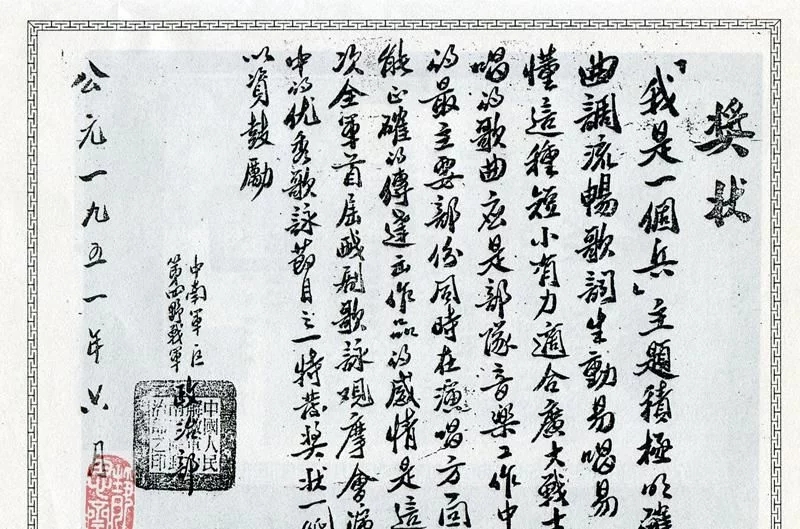 奖状
「我是一個兵」主題積極明確
曲調流暢歌詞生動易唱易
懂這種短小有力適合廣大戰士
唱的歌曲应是部隊音樂工作中
的最主要部份同時在演唱方面
能正確的傳達出作品的感情是這
次全軍首屆戲劇歌詠观摩會演
中的优秀歌詠節目之一特發奖状一
以資鼓勵
中南軍区
第四野戰軍
政治部
公元一九五一年六月
中國人民